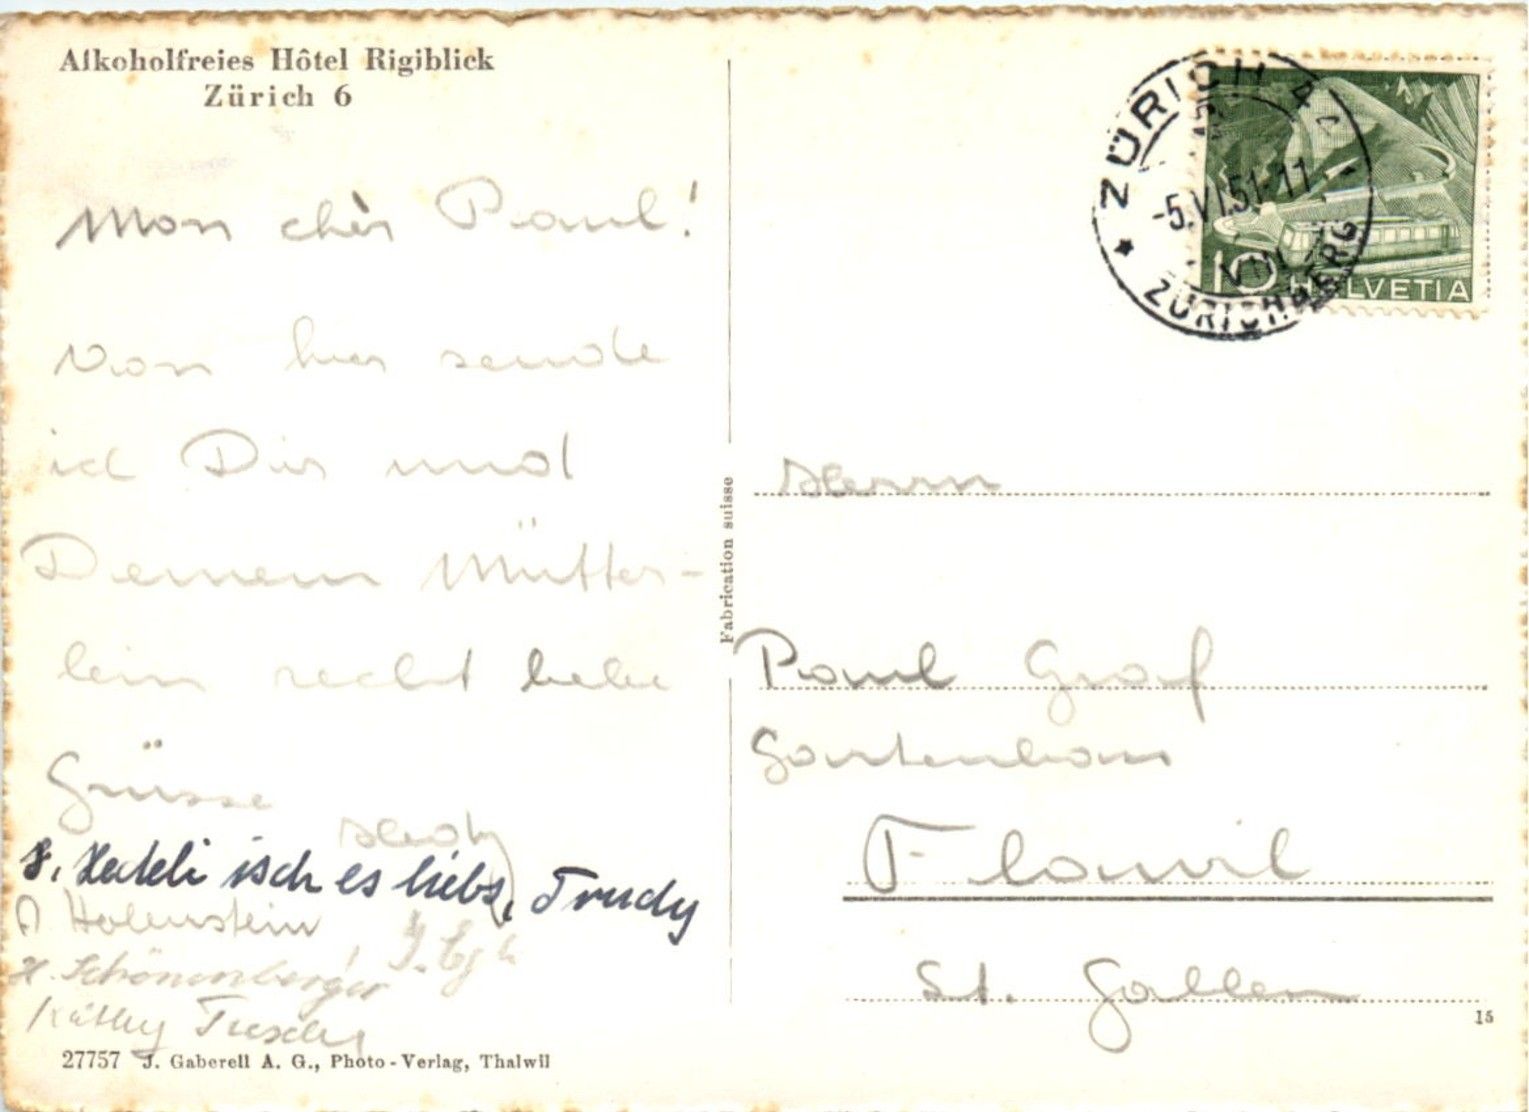 Alkoholfreies Hôtel Rigiblick
Zürich 6
Mon chèr Paul!
Von hier sende
ich Dir und
Deinem Mütter-
lein recht liebe
Grüsse
isch es liebs, Trudy
A Holenstein
H. Schönenberger
Käthy
27757 J. Gaberell A. G., Photo-Verlag, Thalwil
Fabrication suisse
ZÜRICH 44
-5.VI.51-11
VIII
ZÜRICHBERG
10 HELVETIA
Herrn
Paul Graf
Gartenhaus
Flawil
St. Gallen
15